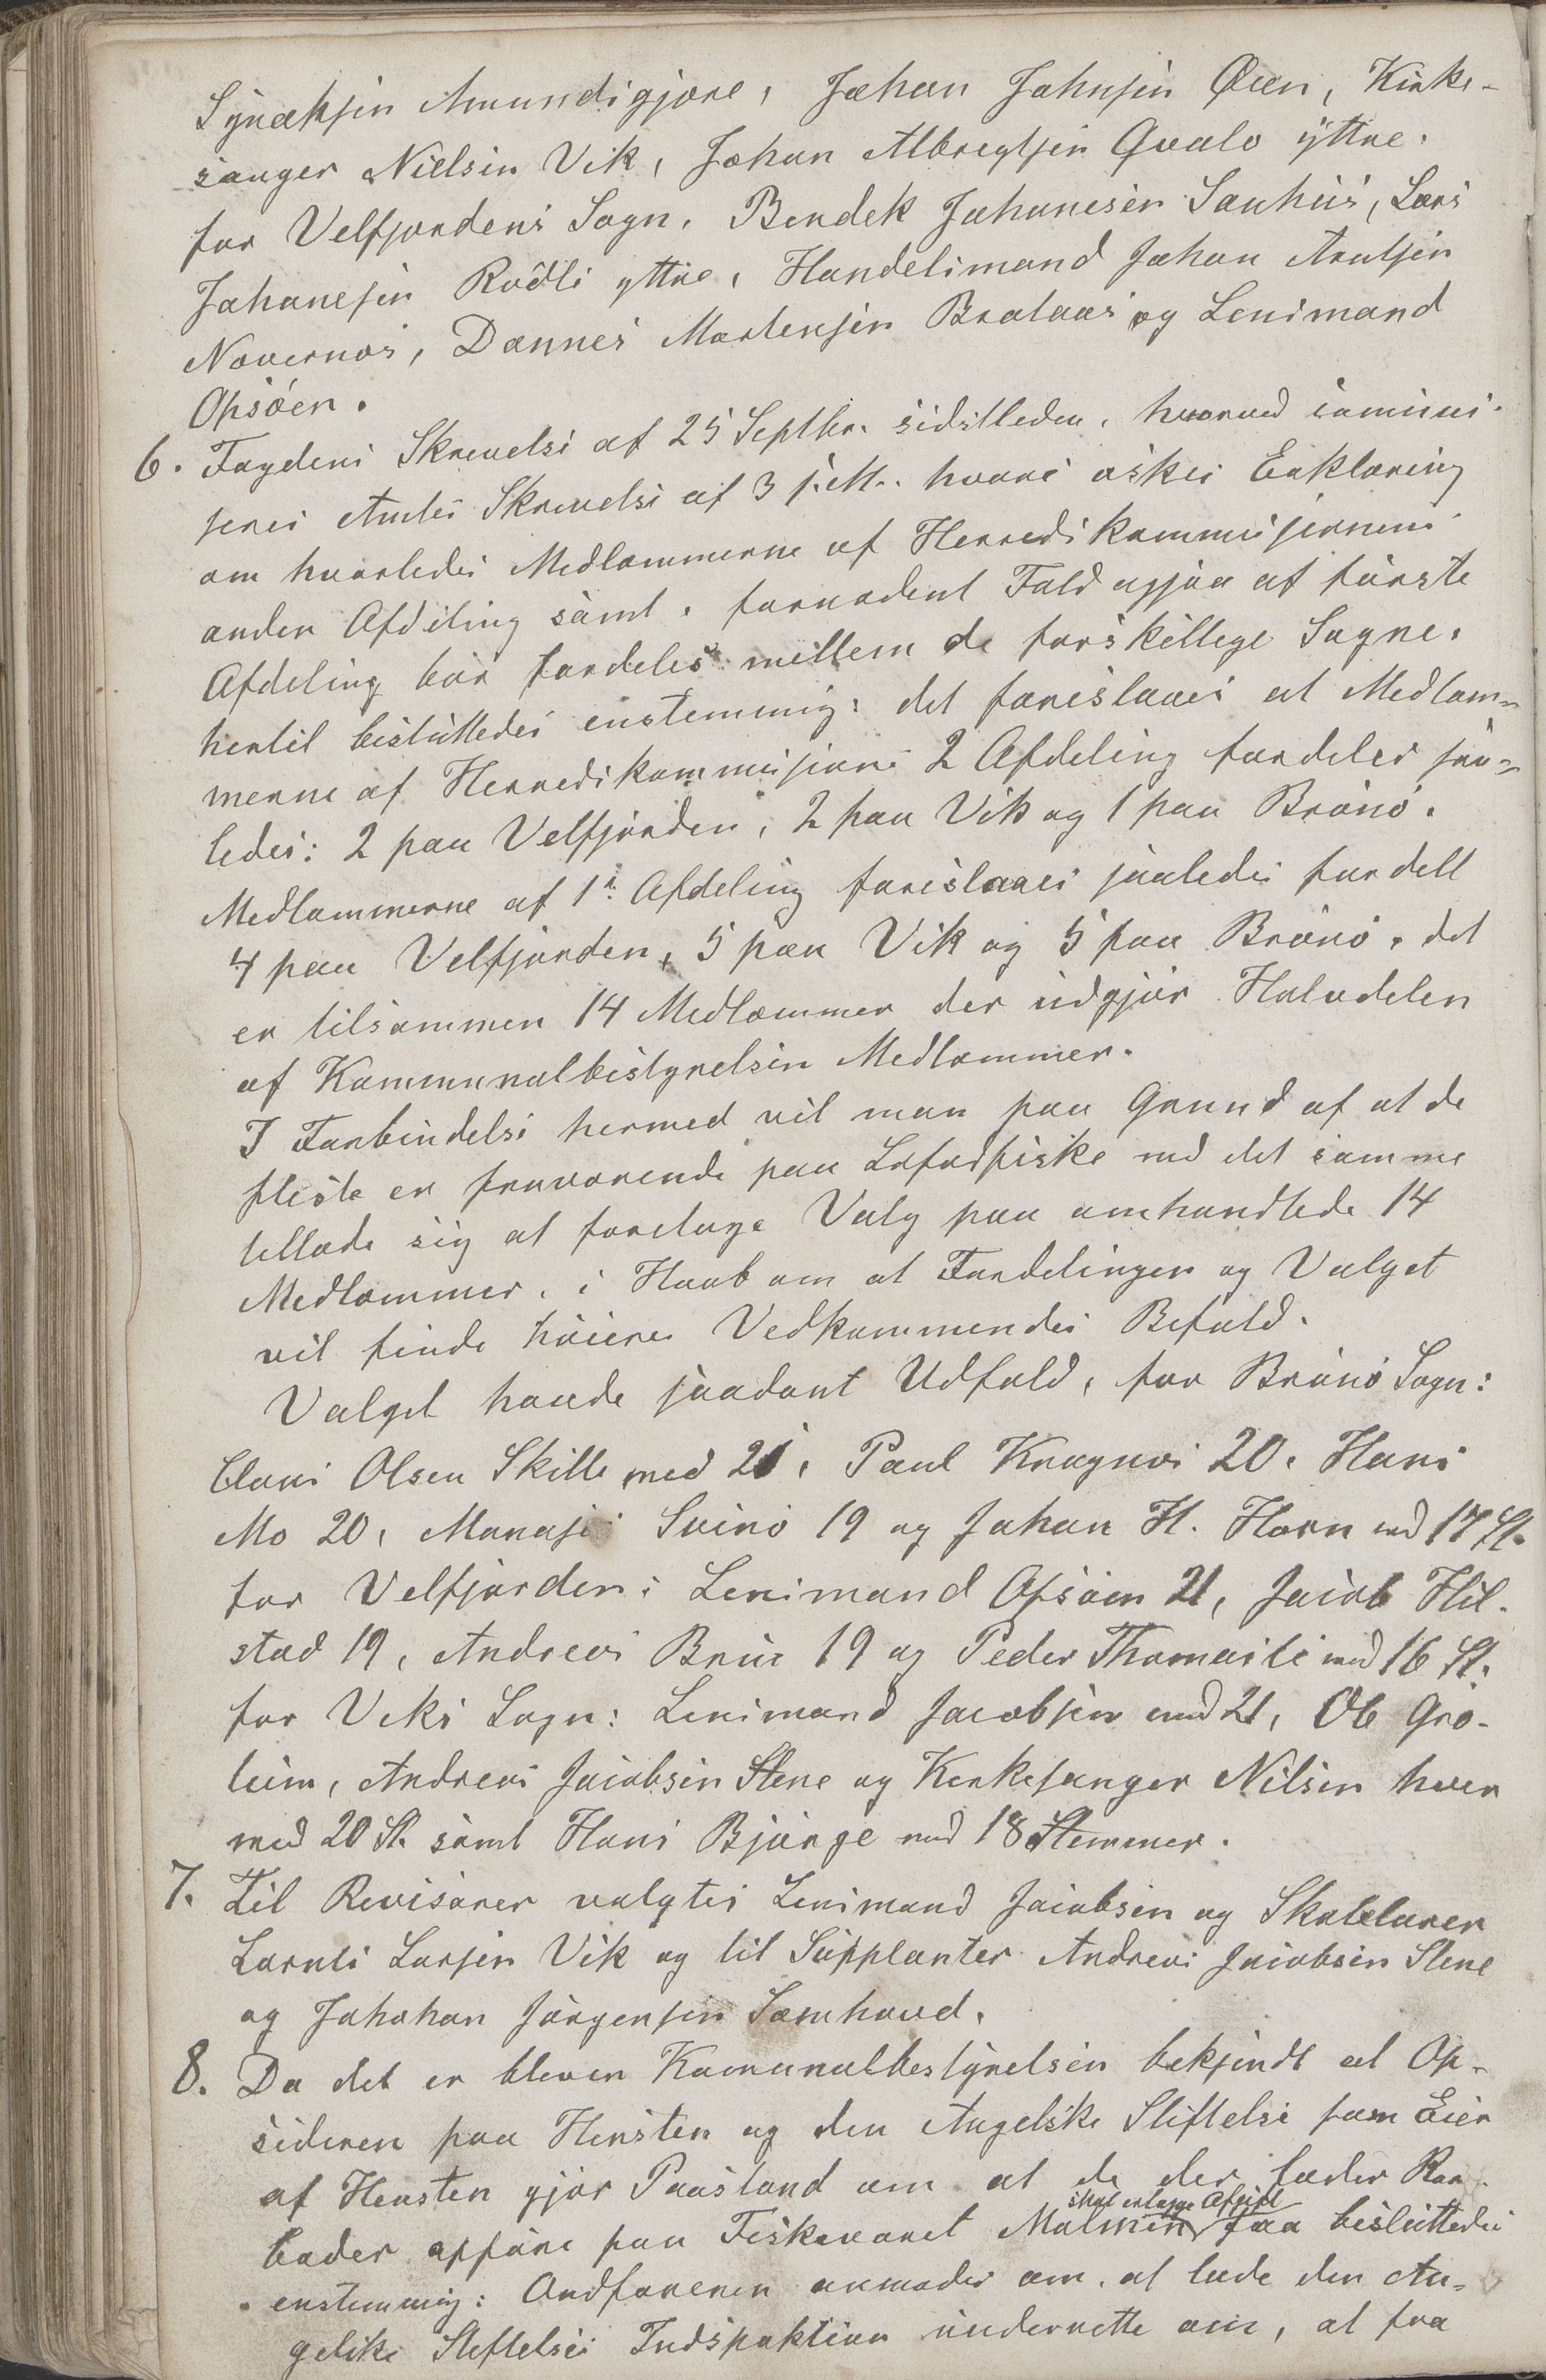 Synæksen Amundsgjøre, Johan Johnsen Øren, Kirke-
sanger Nielsen Vik, Johan Albregtsen Qvalø ytre.
for Velfjordens Sogn, Bendek Johanesen Sauhus, Lars
Johanesen Rødli yttre, Handelsmand Johan Arntsen
Novernæs, Dannes Mortensen Brataas og Lensmand
Opsøen.
6. Fogdens Skrevelse af 25 Septbr. sidstleden, hvorved comuni-
seres Amtets Skrevelse af 3 s. M. hvori æskes Erklæring
om hvorledes Medlemmerne af Herredskommisjonens
anden Afdeling samt i fornødent Fald ogsaa af første
Afdeling bør fordeles mellem de forskellege Sogne.
hertil besluttedes enstemmig: det foreslaaes at Medlem-
merne af Herredskommisjons 2 Afdeling fordeles saa-
ledes: 2 paa Velfjorden, 2 paa Vik og 1 paa Brønø.
Medlemmerne af 1ste Afdeling foreslaaes saaledes fordelt
4 paa Velfjorden, 5 paa Vik og 5 paa Brønø. det
er tilsammen 14 Medlemmer der udgjør Halvdelen
af Kommunalbestyrelsen Medlemmer.
I Forbindelse hermed vil man paa Grund af at de
fleste er fraværende paa Lofodfiske med det samme
tellade sig at foretage Valg paa omhandlede 14
Medlemmer, i Haab om at Fordelingen og Valget
vil finde høiere Vedkommendes Befald.
Valget havde saadant Udfald, for Brønø Sogn:
Claus Olsen Skille med 21, Paul Kragnæs 20, Hans
Mo 20, Manase Svinø 19 og Johan H. Horn med 17 St.
for Velfjorden: Lensmand Opsøen 21, Jacob Hil-
stad 19, Andreas Brur 19 og Peder Thomasli med 16 St.
for Veks Sogn: Lensmand Jacobsen med 21, Ole Grø-
leim, Andreas Jacobsen Stene og Kerkesanger Nilsen hver
med 20 St. samt Hans Bjørge med 18 Stemmer.
7. Til Revisorer valgtes Lensmand Jacobsen og Skolelærer
Lornts Larsen Vik og til Supplanter Andreas Jacobsen Stene
og Johohan Jørgensen Somhovd.
8. Da det er bleven Komunalbestyrelsen bekjendt at Op-
sideren paa Hensten og den Angelske Stiftelse som Eier
af Hensten gjør Paastand om at de der lader Ror-
boder opføre paa Fiskeværet Malmen skal erlægge Afgift faa besluttedes
enstemmig: Ordføreren anmodes om, at lade den An-
gelske Steftelses Indspektion underrette om, at fra